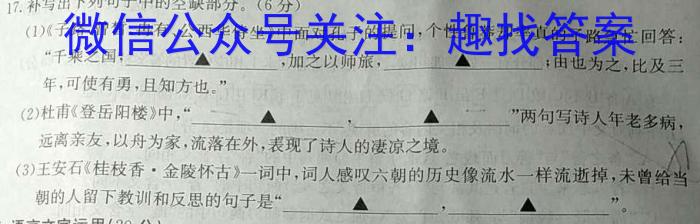 17.补写出下列句子中的空缺部分。(6分)
微信公众号关注：趣找答案
(1)《子路、曾皙、冉有、公西华侍坐》中面对孔子的提问，个性的子路回答：
“千乘之国，▲，加之以师旅，▲；由也为之，比及三
年，可使有勇，且知方也。”
(2)杜甫《登岳阳楼》中，“▲，▲”两句写诗人年老多病，
远离亲友，以舟为家，流落在外，表现了诗人的凄凉之境。
(3)王安石《桂枝香·金陵怀古》一词中，词人感叹六朝的历史像流水一样流逝掉，未曾给当
朝的人留下教训和反思的句子是“▲，▲”。